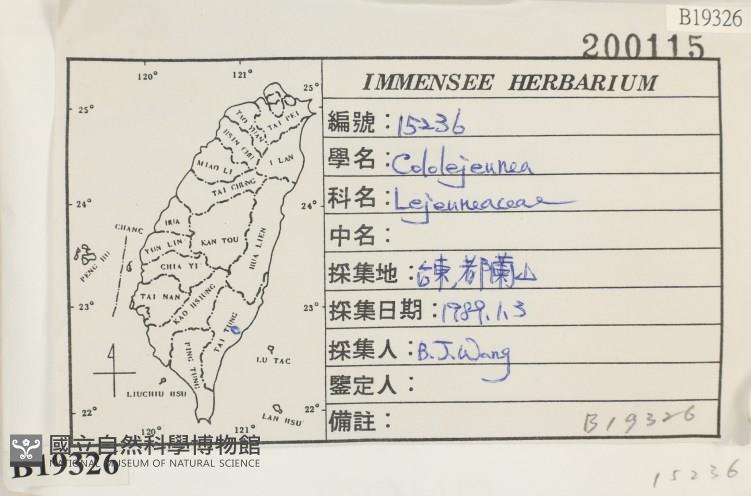 B19326
200115
IMMENSEE HERBARIUM
編號：15236
學名：Cololejeunea
科名：Lejeuneaceae
中名：
採集地：台東,都蘭山
採集日期：1989.1.3
採集人：B.J.Wang
鑒定人：
備註：
B19326
15236
120° 121°
25° 25°
24° 24°
23° 23°
22° 22°
120° 121°
TAI PEI
TAO YUAN
HSIN CHU
I LAN
MIAO LI
TAI CHUNG
CHANG
HUA
NAN TOU
HUA LIEN
YUN LIN
CHIA YI
PENG HU
TAI NAN
KAO HSIUNG
TAI TUNG
PING TUNG
LU TAO
LIUCHIU HSU
LAN HSU
國立自然科學博物館
NATIONAL MUSEUM OF NATURAL SCIENCE
B19326